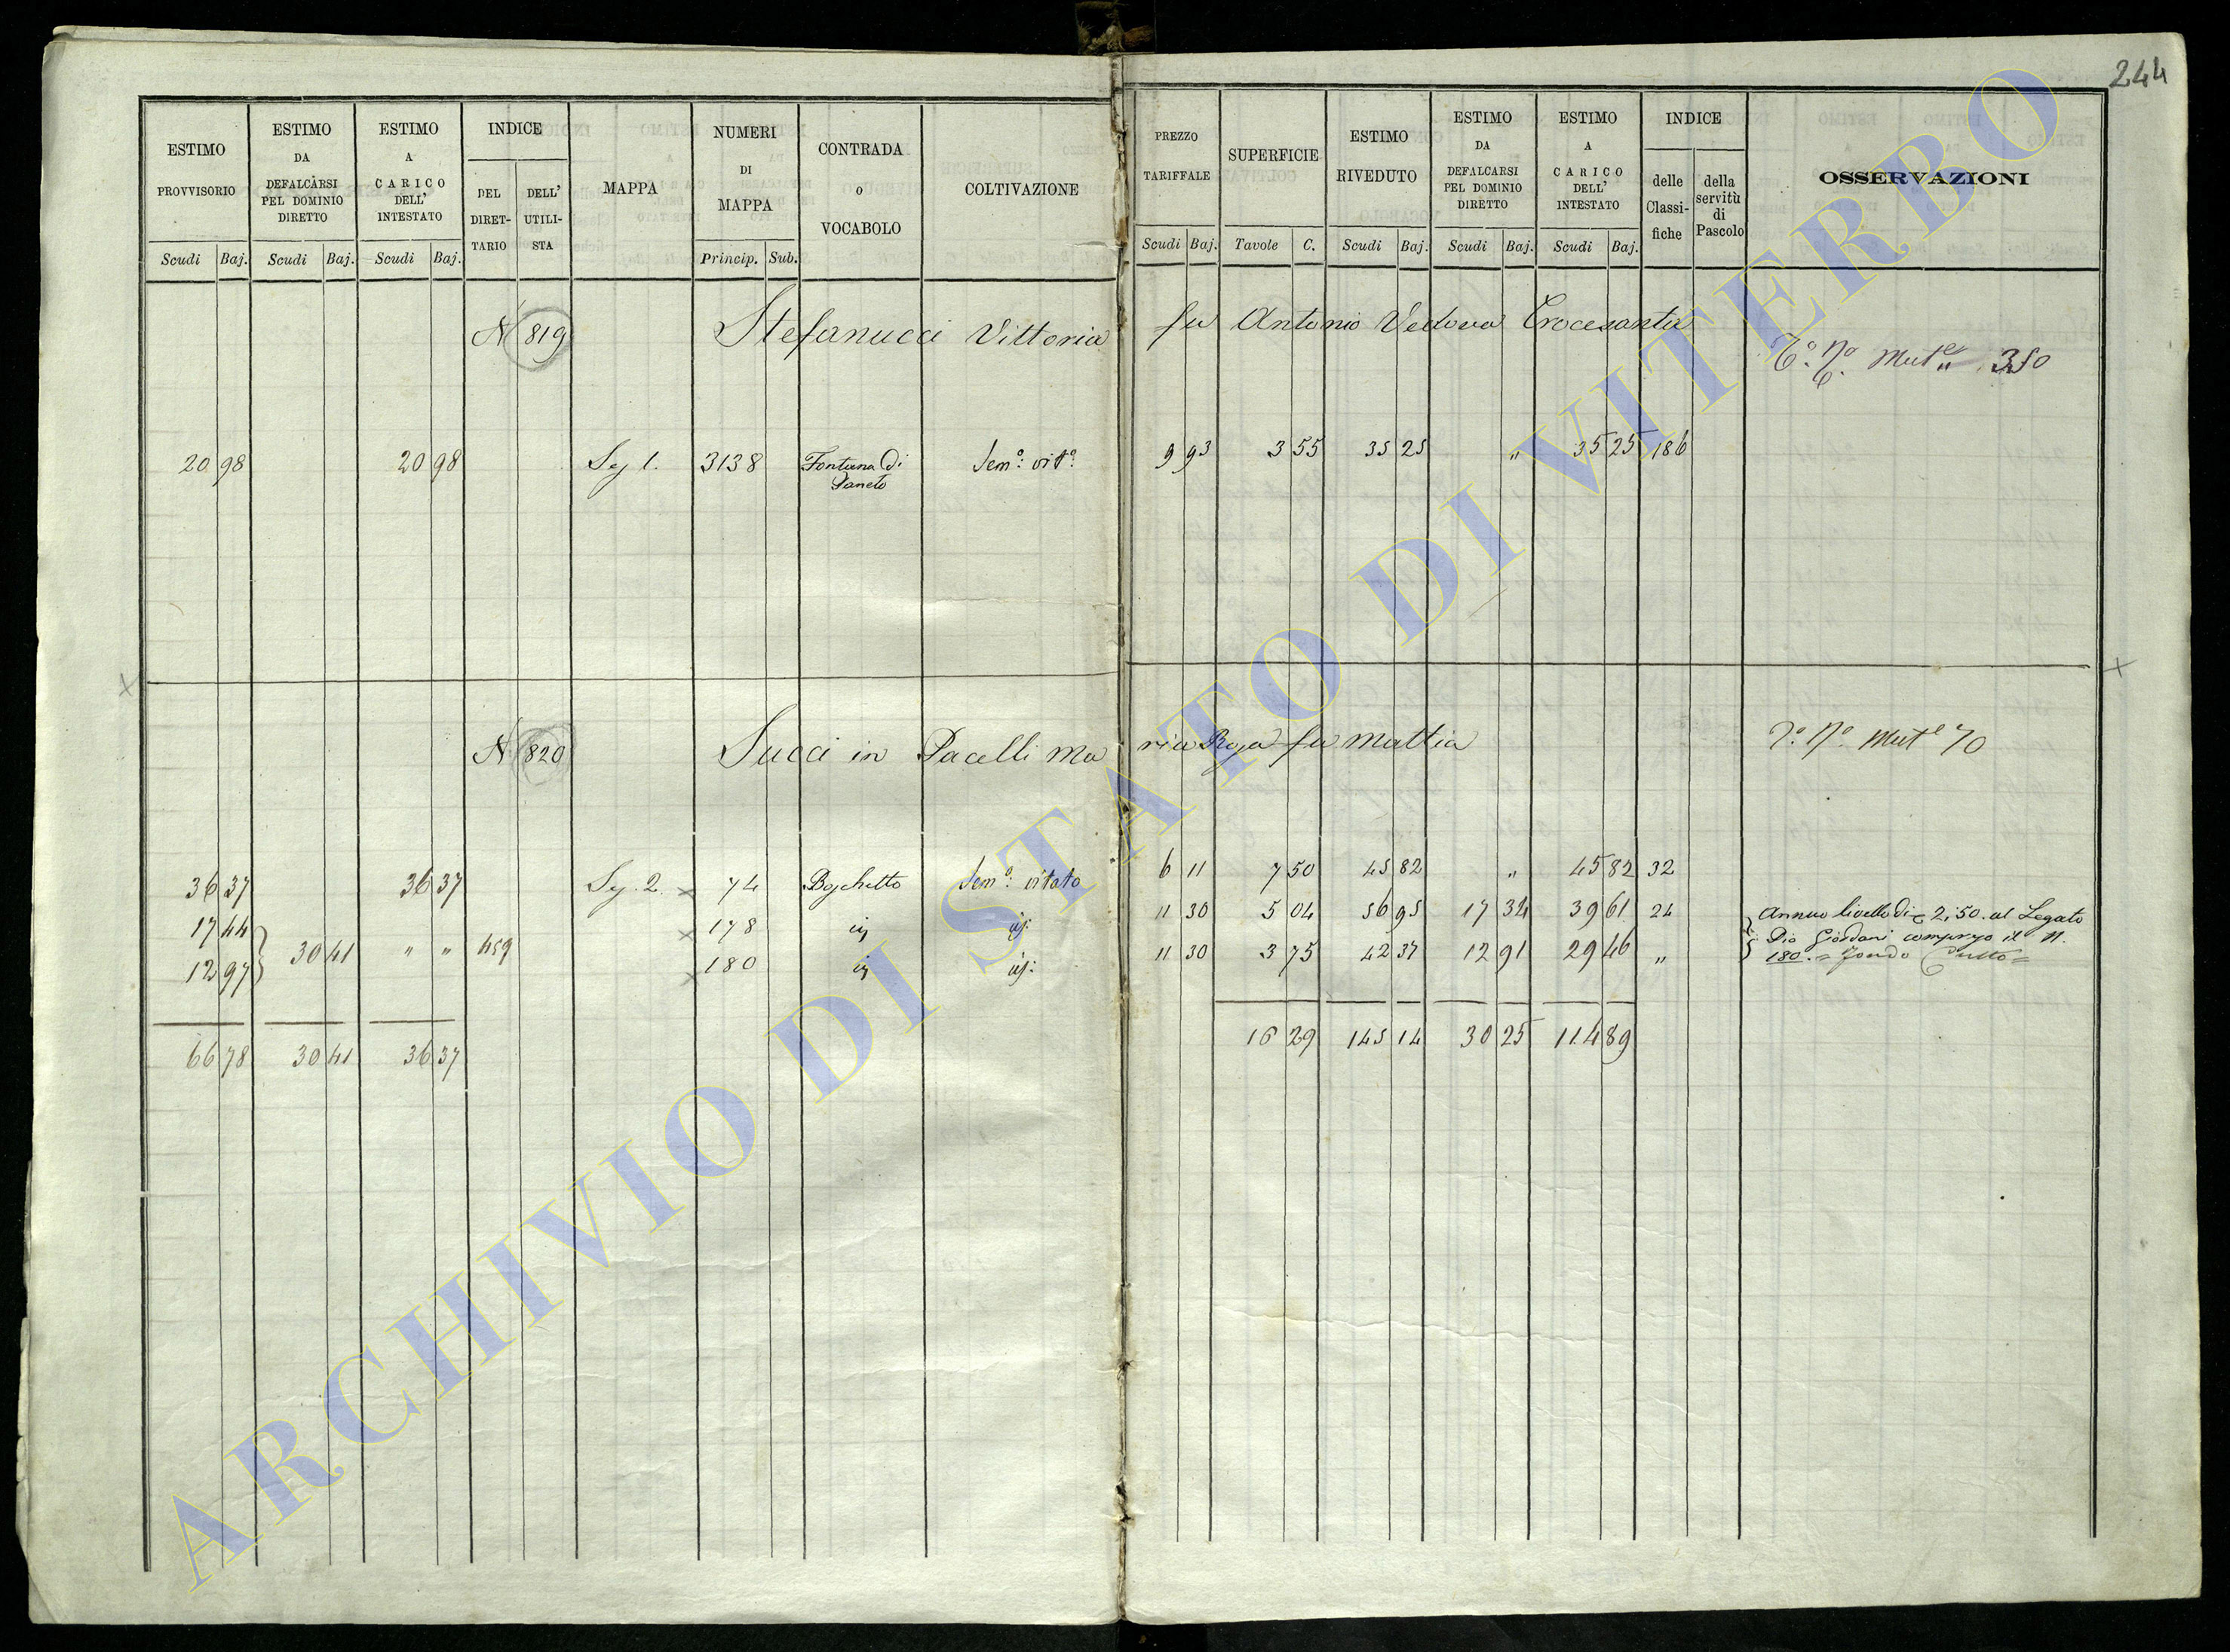 244
ESTIMO PROVVISORIO Scudi Baj.
ESTIMO DA DEFALCARSI PEL DOMINIO DIRETTO Scudi Baj.
ESTIMO A CARICO DELL' INTESTATO Scudi Baj.
INDICE DEL DIRET-TARIO DELL' UTILI-STA
MAPPA
NUMERI DI MAPPA Princip. Sub.
CONTRADA o VOCABOLO
COLTIVAZIONE
PREZZO TARIFFALE Scudi Baj.
SUPERFICIE Tavole C.
ESTIMO RIVEDUTO Scudi Baj.
ESTIMO DA DEFALCARSI PEL DOMINIO DIRETTO Scudi Baj.
ESTIMO A CARICO DELL' INTESTATO Scudi Baj.
INDICE delle Classi-fiche della servitù di Pascolo
OSSERVAZIONI
N 819 Stefanucci Vittoria fu Antonio Vedova Crocesanta
Mut.e 350
20 98 20 98 Sez 1. 3138 Fontana di Saneto Sem.o: vit.o: 9 93 3 55 35 25 " 35 25 186
N 820 Succi in Pacelli Maria Rosa fu Mattia
Mut.e 70
36 37 36 37 Sez. 2. 74 Boschetto Sem.o: vitato 6 11 7 50 45 82 " 45 82 32
17 44 178 11 30 5 04 56 95 17 34 39 61 24
30 41 " " 459
12 97 180 11 30 3 75 42 37 12 91 29 46 "
Annuo livello di 2:50. al Legato
Pio Giordani compreso il N.
180. = Fondo
66 78 30 41 36 37 16 29 145 14 30 25 114 89
ARCHIVIO DI STATO DI VITERBO